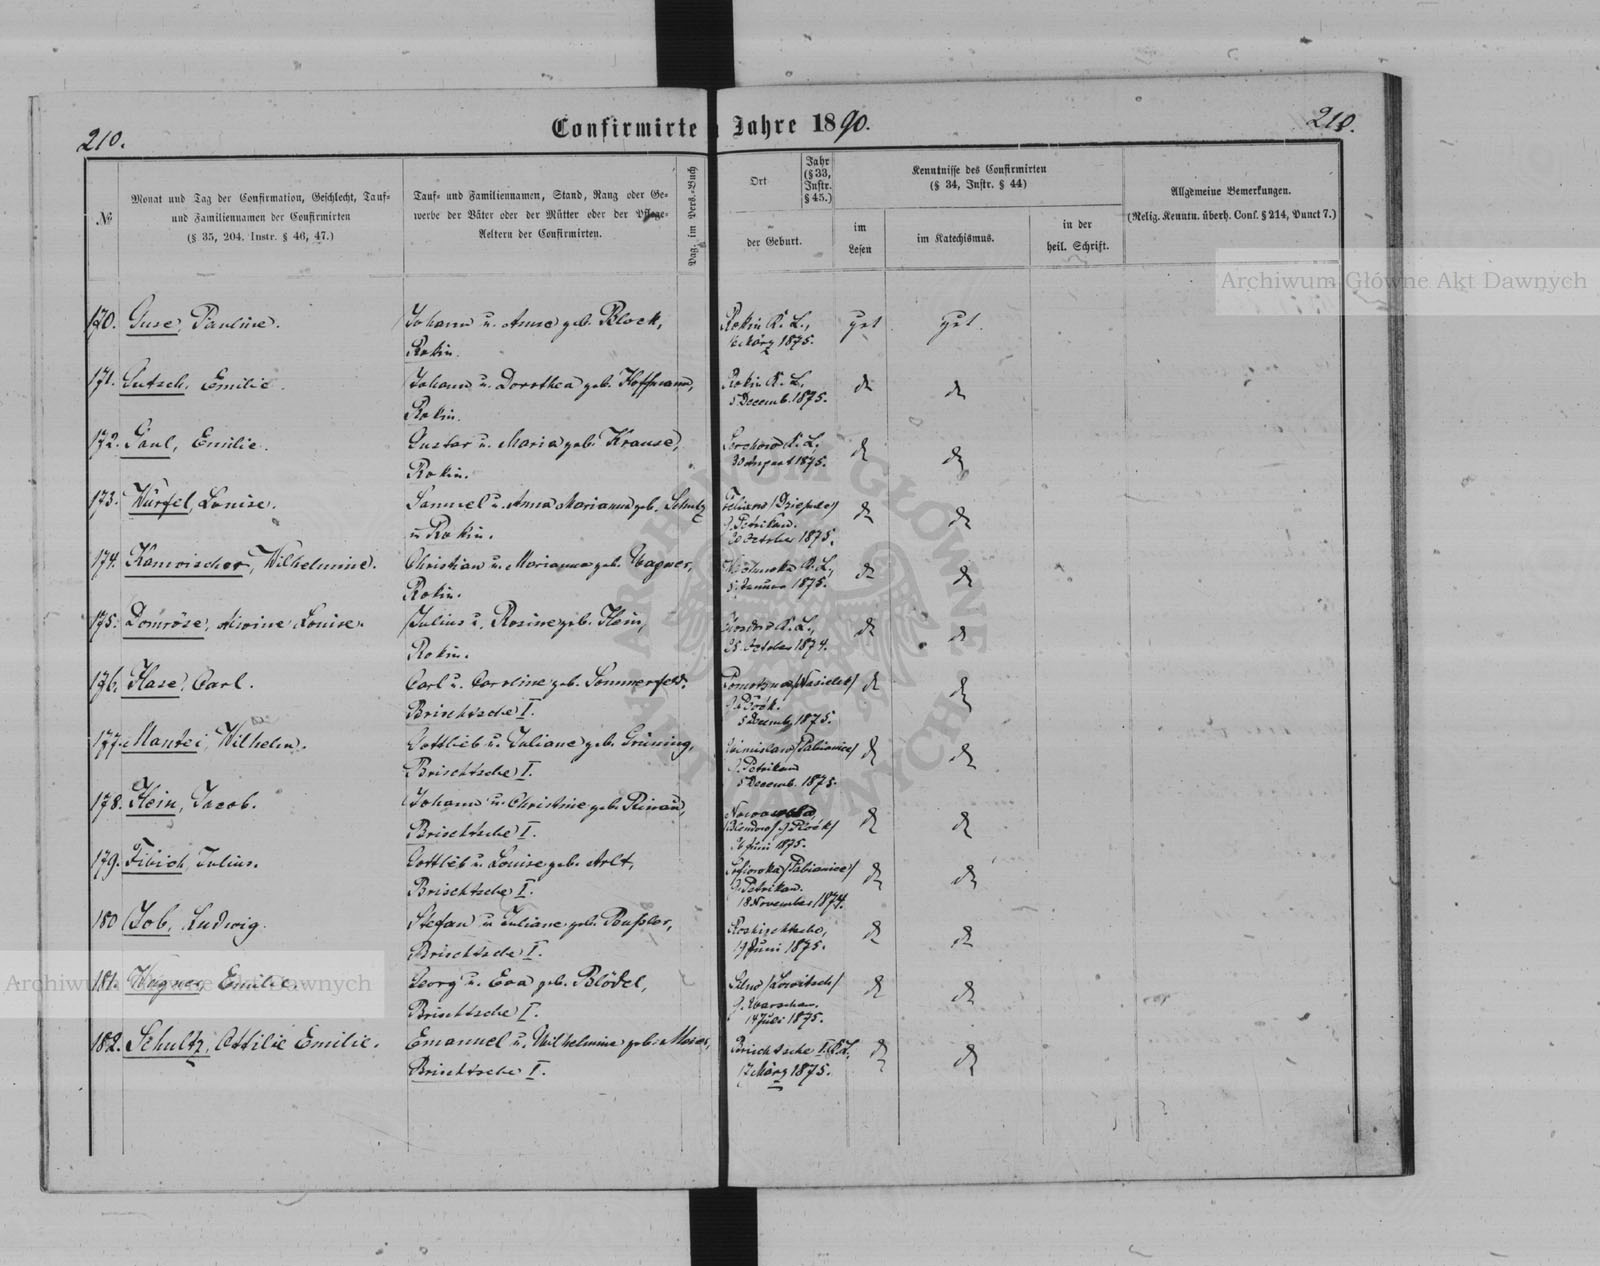 210.
Confirmirte
Jahre 1890.
210.
№
Monat und Tag der Confirmation, Geschlecht, Tauf-
und Familiennamen der Confirmirten
(§ 35, 204. Instr. § 46, 47.)
Tauf- und Familiennamen, Stand, Rang oder Ge-
werbe der Väter oder der Mütter oder der Pflege-
Aeltern der Confirmirten.
Pag. im Pers.-Buch
Ort
Jahr
(§ 33,
Instr.
§ 45.)
der Geburt.
Kenntnisse des Confirmirten
(§ 34, Instr. § 44)
im
Lesen
im Katechismus.
in der
heil. Schrift.
Allgemeine Bemerkungen.
(Relig. Kenntn. überh. Conf. § 214, Punct 7.)
Archiwum Główne Akt Dawnych
170. Guse, Pauline.
Johann u. Anna geb. Block,
Rokin.
Rokin K. L.,
März 1875.
gut
gut.
171. Gutsch, Emilie.
Johann u. Dorothea geb. Hoffmann,
Rokin.
Rokin K. L.,
5 Decemb. 1875.
172. Paul, Emilie.
Gustav u. Maria geb. Krause,
Rokin.
K. L.,
30 August 1875.
173. Würfel, Louise.
Samuel u. Anna Marianna geb. Schultz
Rokin.
G. Petrikau.
20 October 1875.
174. Kamischer, Wilhelmine.
Christian u. Marianna geb. Wagner,
Rokin.
K. L.,
5 Januar 1875.
175. Domröse, Alwine Louise.
Julius u. Rosine geb. Hein,
Rokin.
K. L.,
25 October 1874.
176. Hase, Carl.
Carl u. Caroline geb. Sommerfeld,
Brischtsche I.
/Nasielsk/
G. Plock.
5 Decemb. 1875.
177. Mantei, Wilhelm.
Gottlieb u. Juliane geb. Grüning,
Brischtsche I.
/Pabianice/
G. Petrikau
5 Decemb. 1875.
178. Hein, Jacob.
Johann u. Christine geb.
Brischtsche I.
G. Plock/
26 Juni 1875.
179. Fibich, Julius.
Gottlieb u. Louise geb. Arlt,
Brischtsche I.
/Pabianice/
G. Petrikau.
18 November 1874.
180 Job, Ludwig.
Stefan u. Juliane geb.
Brischtsche I.
Roschischtsche,
19 Juni 1875.
181. Wagner, Emilie.
Georg u. Eva geb. Blödel,
Brischtsche I.
/Lowitsch/
G. Warschau.
14 Juli 1875.
182. Schultz, Ottilie Emilie.
Emanuel u. Wilhelmine geb. Moses,
Brischtsche I.
Brischtsche I K.L.
17 März 1875.
Archiwum Główne Akt Dawnych
ARCHIWUM GŁÓWNE AKT DAWNYCH